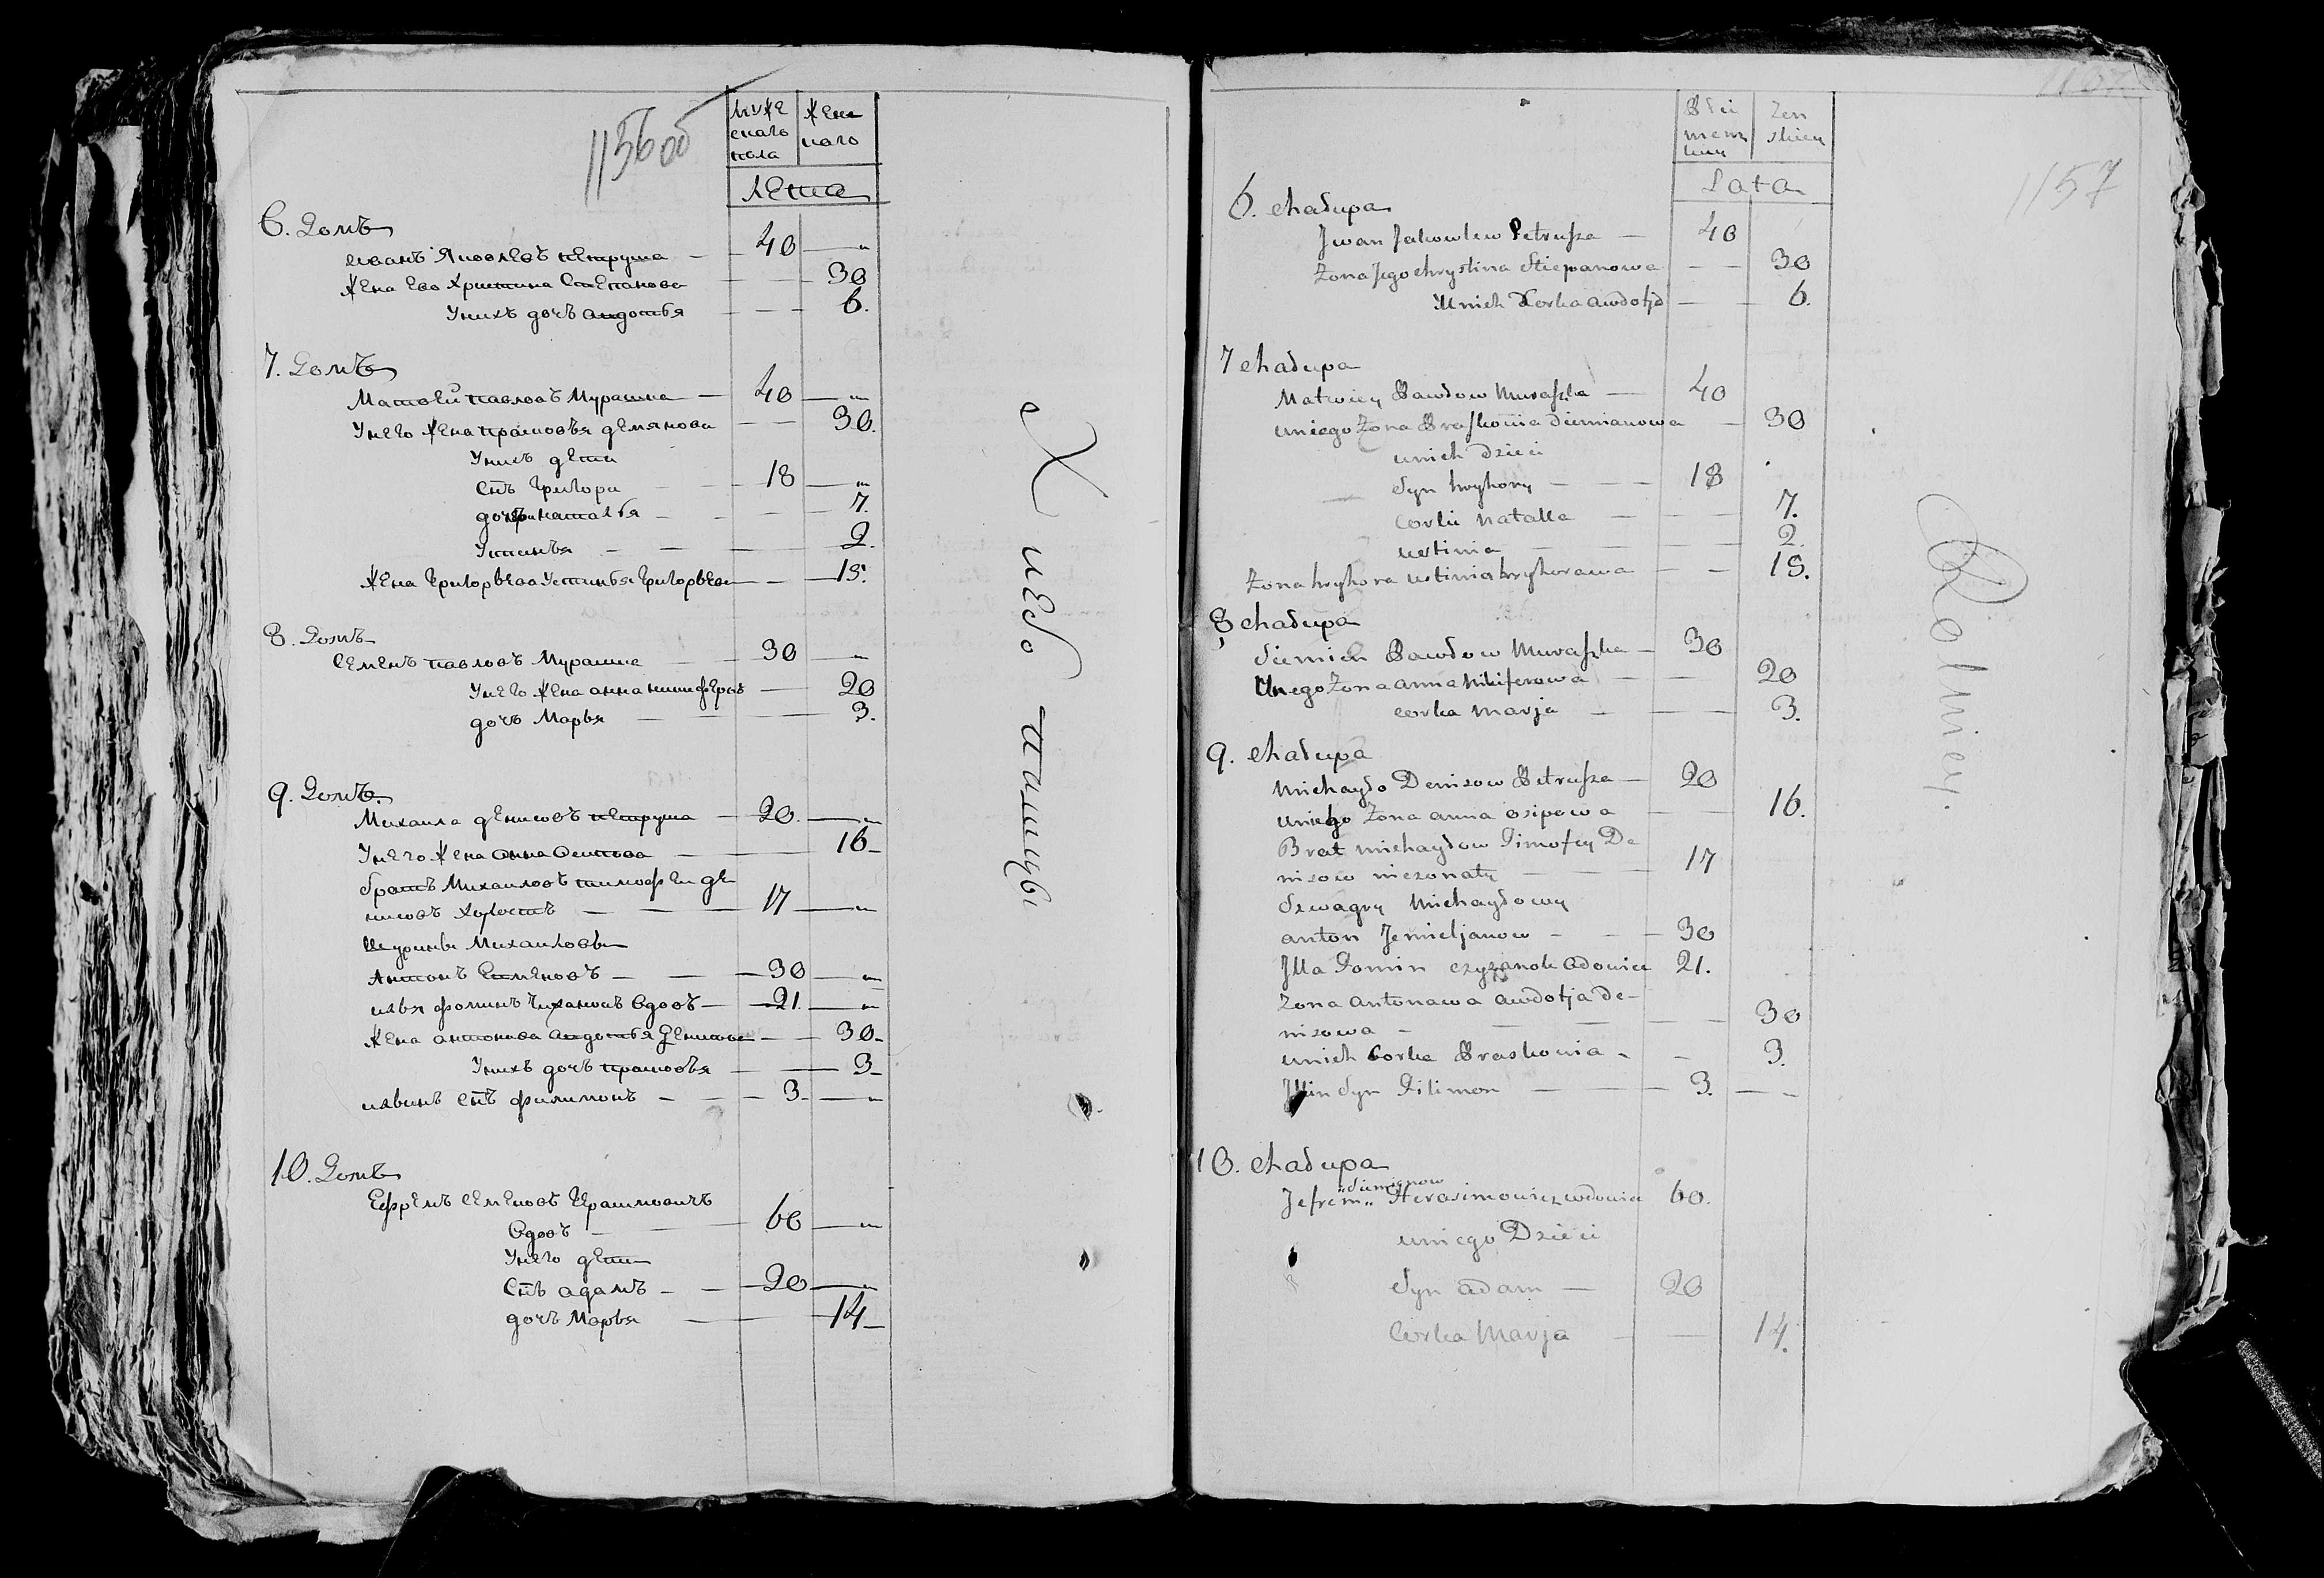 1156 об
Муже
скаго
пола
Жен
скаго
Лета
6. Домъ
Иванъ Яковлевъ Петруша — 40 — "
Жена Ево Христина Степанова — — 30
Унихъ дочъ Авдотья — — 6.
7. Домъ
Матвей Павловъ Мурашка — 40 — "
Унего Жена Прасковья Демянова — — 30.
Унихъ дети
Снъ Григори — — 18 — "
дочери Наталья — — — 7.
Устинья — — — 2.
Жена Григорьева Устинья Григорьева — — 18.
8. Домъ
Семенъ Павловъ Мурашка — 30 — "
Унего Жена Анна Никиферов — 20
дочъ Марья — — — 3.
9. Домъ.
Михаила Денисовъ Петруша — 20. — "
Унего Жена Анна Осипова — — 16 —
братъ Михаиловъ Тимофеи Де
нисовъ Холостъ — — — 17 — "
Шурины Михаиловы
Антонъ Емленовъ — — — 30 — "
Илья Фоминъ Чижанокъ Вдовъ — 21. — "
Жена Антонова Авдотья Денисова — — 30 —
Унихъ дочъ Прасковья — — 3 —
Ильинъ Снъ Филимонъ — — — 3 — — "
10. Домъ
Ефремъ Семеновъ Герасимовичъ
Вдовъ — — 60 — "
Унего дети
Снъ Адамъ — — 20 — "
дочъ Марья — — 14 —
Хлебопашцы
1157
Płci
menz
kiey
Zen
skiey
Lata
6. Chałupa
Jwan Jakowlew Petrusza — 40
Zona Jego Chrystina Stiepanowa — — 30
Unich Corka Awdotja — — 6.
7 Chałupa
Matwiey Pawłow Muraszka — 40
uniego Zona Praskowia Diemianowa — 30
unich Dzieci
Syn hryhory — — — 18
Corki Natalla — — — 7.
ustinia — — — 2.
Zona hryhora ustinia hryhorawa — — 18.
8 Chałupa
Siemien Pawłow Muraszka — 30
Unego Zona Anna Nikiferowa — — 20
Corka Marja — — — 3.
9. Chałupa
Michayło Denisow Petrusza — 20
uniego Zona Anna Osipowa — — 16.
Brat Michayłow Timofey De
nisow niezonaty — — — 17
Szwagry Michayłowy
Anton Jemieljanow — — — 30
Jlla Fomin Czyzanok Wdowiec 21.
Zona Antonawa Awdotja De-
nisowa — — — — 30
unich Corka Praskowia — — 3.
Jllin Syn Filimon — — — 3. — —
10. Chałupa
Siemienow
Jefrem " Herasimowicz wdowiec 60.
uniego Dzieci
Syn Adam — 20
Corka Marja — — 14.
Rolniey.